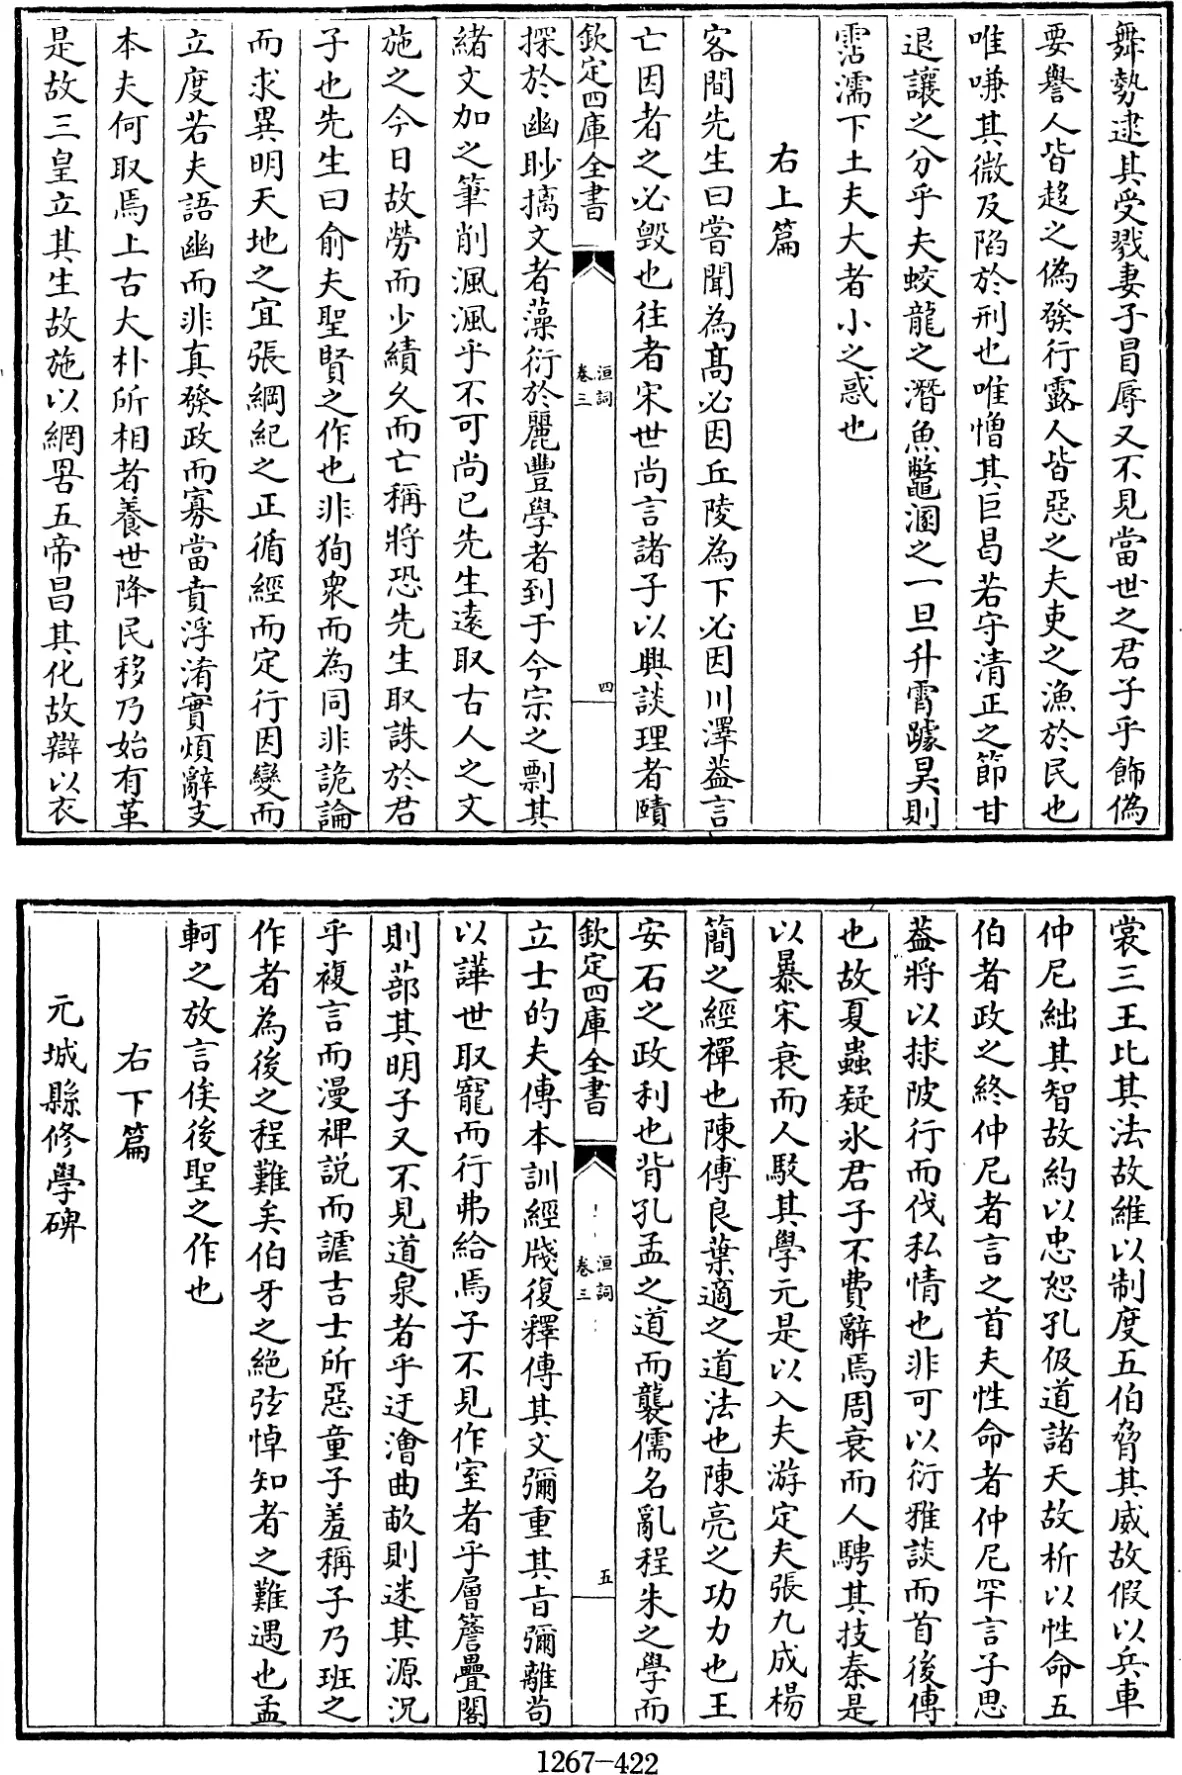 舞勢逮其受戮妻子冒辱又不見當世之君子乎飾偽
要譽人皆趍之偽發行露人皆惡之夫吏之漁於民也
唯嗛其微及陷於刑也唯憎其巨曷若守清正之節甘
退讓之分乎夫蛟龍之潛魚鼈溷之一旦升霄躆昊則
霑濡下土夫大者小之惑也
右上篇
客間先生曰嘗聞為髙必因丘陵為下必因川澤葢言
亡因者之必毁也往者宋世尚言諸子以興談理者賾
欽定四庫全書
洹詞
卷三
四
探於幽眇摛文者藻衍於麗豐學者到于今宗之剽其
緒文加之筆削渢渢乎不可尚已先生遠取古人之文
施之今日故勞而少績久而亡稱將恐先生取誅於君
子也先生曰俞夫聖賢之作也非狥衆而為同非詭論
而求異明天地之宜張綱紀之正循經而定行因變而
立度若夫語幽而非真發政而寡當賁浮淆實煩辭支
本夫何取焉上古大朴所相者養世降民移乃始有革
是故三皇立其生故施以網罟五帝昌其化故辯以衣
裳三王比其法故維以制度五伯脅其威故假以兵車
仲尼絀其智故約以忠恕孔伋道諸天故析以性命五
伯者政之終仲尼者言之首夫性命者仲尼罕言子思
葢將以捄陂行而伐私情也非可以衍雅談而首後傳
也故夏蟲疑氷君子不費辭焉周衰而人騁其技秦是
以暴宋衰而人駁其學元是以入夫游定夫張九成楊
簡之經禪也陳傅良葉適之道法也陳亮之功力也王
安石之政利也背孔孟之道而襲儒名亂程朱之學而
欽定四庫全書
洹詞
卷三
五
立士的夫傳本訓經牋復釋傳其文彌重其㫖彌離苟
以譁世取寵而行弗給焉子不見作室者乎層簷疊閣
則蔀其明子又不見道泉者乎迂澮曲畝則迷其源況
乎複言而漫裨説而謔吉士所惡童子羞稱子乃班之
作者為後之程難矣伯牙之絶弦悼知者之難遇也孟
軻之放言俟後聖之作也
右下篇
元城縣修學碑
1267-422